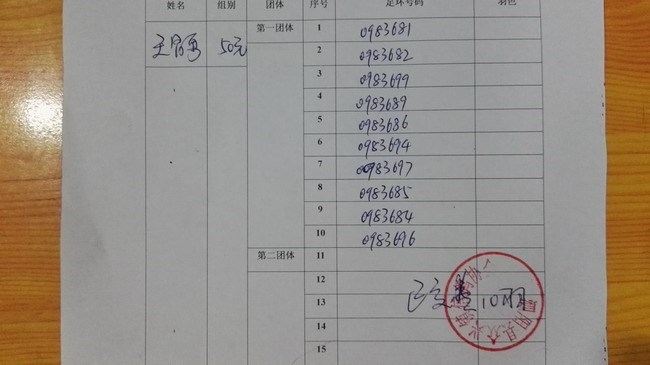 姓名 组别 团体 序号 足环号码 羽色
50元 第一团体 1 0983681
2 0983682
3 0983699
4 0983689
5 0983686
6 0983694
7 0983697
8 0983685
9 0983684
10 0983696
第二团体 11
12
13
14
15